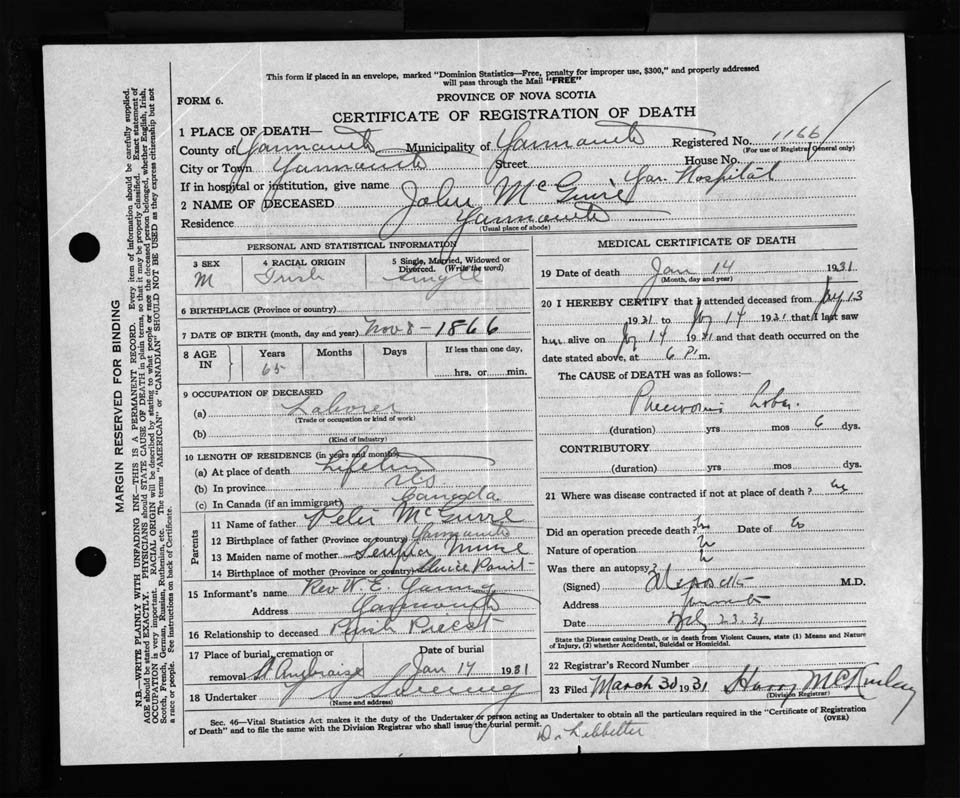 This form if placed in an envelope, marked "Dominion Statistics—Free, penalty for improper use, $300," and properly addressed
will pass through the Mail "FREE"
PROVINCE OF NOVA SCOTIA
FORM 6.
CERTIFICATE OF REGISTRATION OF DEATH
1 PLACE OF DEATH—
County of Yarmouth Municipality of Yarmouth Registered No. 1166
(For use of Registrar General only)
City or Town Yarmouth Street House No.
If in hospital or institution, give name Yar. Hospital
2 NAME OF DECEASED John McGuire
Residence Yarmouth
(Usual place of abode)
PERSONAL AND STATISTICAL INFORMATION
3 SEX 4 RACIAL ORIGIN 5 Single, Married, Widowed or
Divorced. (Write the word)
M Irish Single
6 BIRTHPLACE (Province or country)
7 DATE OF BIRTH (month, day and year) Nov 8—1866
8 AGE IN Years Months Days If less than one day,
65 hrs. or min.
9 OCCUPATION OF DECEASED
(a) Laborer
(Trade or occupation or kind of work)
(b)
(Kind of industry)
10 LENGTH OF RESIDENCE (in years and months)
(a) At place of death Lifetime
(b) In province N.S.
(c) In Canada (if an immigrant) Canada
Parents
11 Name of father Peter McGuire
12 Birthplace of father (Province or country) Yarmouth
13 Maiden name of mother
14 Birthplace of mother (Province or country)
15 Informant's name Rev W. E. Young
Address Yarmouth
16 Relationship to deceased Parish Priest
17 Place of burial, cremation or Date of burial
removal St Ambroise Jan 17 1931
18 Undertaker Sweeney
(Name and address)
MEDICAL CERTIFICATE OF DEATH
19 Date of death Jan 14 1931
(Month, day and year)
20 I HEREBY CERTIFY that I attended deceased from 13
1931 to 14 1931 that I last saw
him alive on 14 1931 and that death occurred on the
date stated above, at 6 P. m.
The CAUSE of DEATH was as follows:—
Pneumonia Lobar
(duration) yrs mos 6 dys.
CONTRIBUTORY
(duration) yrs mos dys.
21 Where was disease contracted if not at place of death?
Did an operation precede death? Date of
Nature of operation
Was there an autopsy?
(Signed) M.D.
Address Yarmouth
Date 23.31
State the Disease causing Death, or in death from Violent Causes, state (1) Means and Nature
of Injury, (2) whether Accidental, Suicidal or Homicidal.
22 Registrar's Record Number
23 Filed March 30 1931 Harry McKinlay
(Division Registrar)
Sec. 46—Vital Statistics Act makes it the duty of the Undertaker or person acting as Undertaker to obtain all the particulars required in the "Certificate of Registration
of Death" and to file the same with the Division Registrar who shall issue the burial permit. (OVER)
Dr Lebbetter
MARGIN RESERVED FOR BINDING
N.B.—WRITE PLAINLY WITH UNFADING INK—THIS IS A PERMANENT RECORD. Every item of information should be carefully supplied.
AGE should be stated EXACTLY. PHYSICIANS should STATE CAUSE OF DEATH in plain terms, so that it may be properly classified. Exact statement of
OCCUPATION is very important. RACIAL ORIGIN will be described by stating to what people or race the deceased person belonged, whether English, Irish,
Scotch, French, German, Russian, Ruthenian, etc. The terms "AMERICAN" or "CANADIAN" SHOULD NOT BE USED as they express citizenship but not
a race or people. See instructions on back of Certificate.